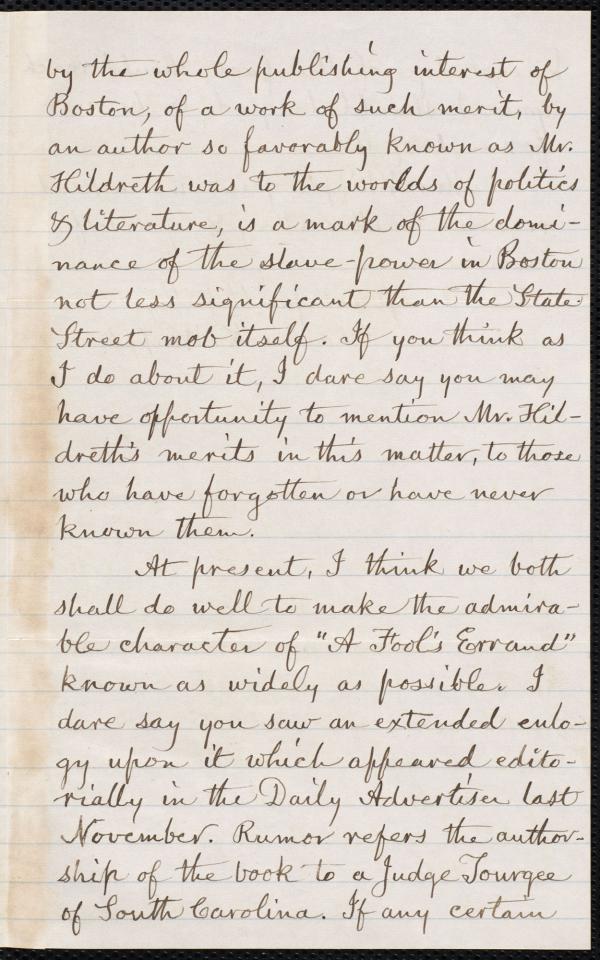 by the whole publishing interest of
Boston, of a work of such merit, by
an author so favorably known as Mr.
Hildreth was to the worlds of politics
& literature, is a mark of the domi-
nance of the slave-power in Boston
not less significant than the State
Street mob itself. If you think as
I do about it, I dare say you may
have opportunity to mention Mr. Hil-
dreth's merits in this matter, to those
who have forgotten or have never
known them.
At present, I think we both
shall do well to make the admira-
ble character of "A Fool's Errand"
known as widely as possible. I
dare say you saw an extended eulo-
gy upon it which appeared edito-
rially in the Daily Advertiser last
November. Rumor refers the author-
ship of the book to a Judge Tourgee
of South Carolina. If any certain